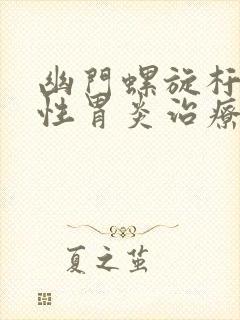 幽門螺旋杆
性胃炎治療
夏之茧